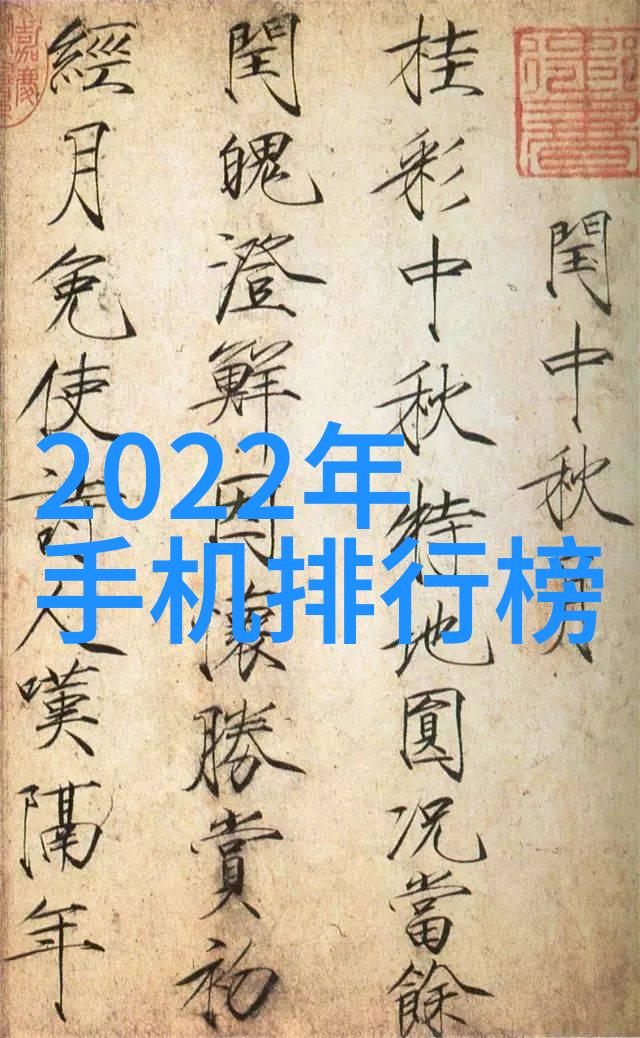 閏中秋月
桂彩中秋特地圓況當餘
閏魄澄鮮因懷勝賞初
經月免使詩人嘆隔年
2022年
手机排行榜